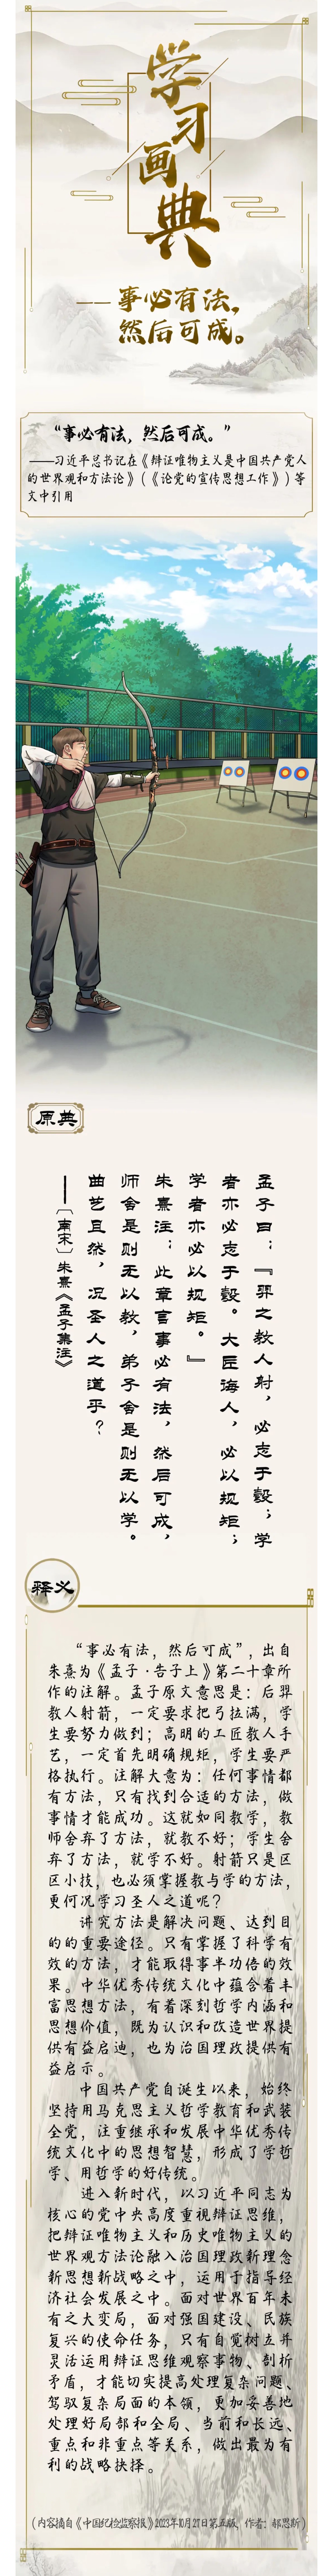 学习画典
——事必有法，
然后可成。
“事必有法，然后可成。”
——习近平总书记在《辩证唯物主义是中国共产党人
的世界观和方法论》（《论党的宣传思想工作》）等
文中引用
原典
孟子曰：『羿之教人射，必志于彀；学
者亦必志于彀。大匠诲人，必以规矩；
学者亦必以规矩。』
朱熹注：此章言事必有法，然后可成，
师舍是则无以教，弟子舍是则无以学。
曲艺且然，况圣人之道乎？
——〔南宋〕朱熹《孟子集注》
释义
“事必有法，然后可成”，出自
朱熹为《孟子·告子上》第二十章所
作的注解。孟子原文意思是：后羿
教人射箭，一定要求把弓拉满，学
生要努力做到；高明的工匠教人手
艺，一定首先明确规矩，学生要严
格执行。注解大意为：任何事情都
有方法，只有找到合适的方法，做
事情才能成功。这就如同教学，教
师舍弃了方法，就教不好；学生舍
弃了方法，就学不好。射箭只是区
区小技，也必须掌握教与学的方法，
更何况学习圣人之道呢？
讲究方法是解决问题、达到目
的的重要途径。只有掌握了科学有
效的方法，才能取得事半功倍的效
果。中华优秀传统文化中蕴含着丰
富思想方法，有着深刻哲学内涵和
思想价值，既为认识和改造世界提
供有益启迪，也为治国理政提供有
益启示。
中国共产党自诞生以来，始终
坚持用马克思主义哲学教育和武装
全党，注重继承和发展中华优秀传
统文化中的思想智慧，形成了学哲
学、用哲学的好传统。
进入新时代，以习近平同志为
核心的党中央高度重视辩证思维，
把辩证唯物主义和历史唯物主义的
世界观方法论融入治国理政新理念
新思想新战略之中，运用于指导经
济社会发展之中。面对世界百年未
有之大变局，面对强国建设、民族
复兴的使命任务，只有自觉树立并
灵活运用辩证思维观察事物、剖析
矛盾，才能切实提高处理复杂问题、
驾驭复杂局面的本领，更加妥善地
处理好局部和全局、当前和长远、
重点和非重点等关系，做出最为有
利的战略抉择。
（内容摘自《中国纪检监察报》2023年10月27日第五版，作者：郝思斯）